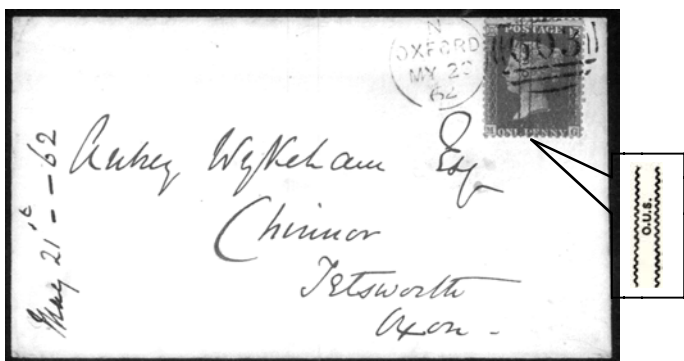 N
OXFORD
MY 20
62
POSTAGE
ONE PENNY
Aubrey Wykeham Esq
Chinnor
Tetsworth
Oxon -
May 21st - - 62
O.U.S.